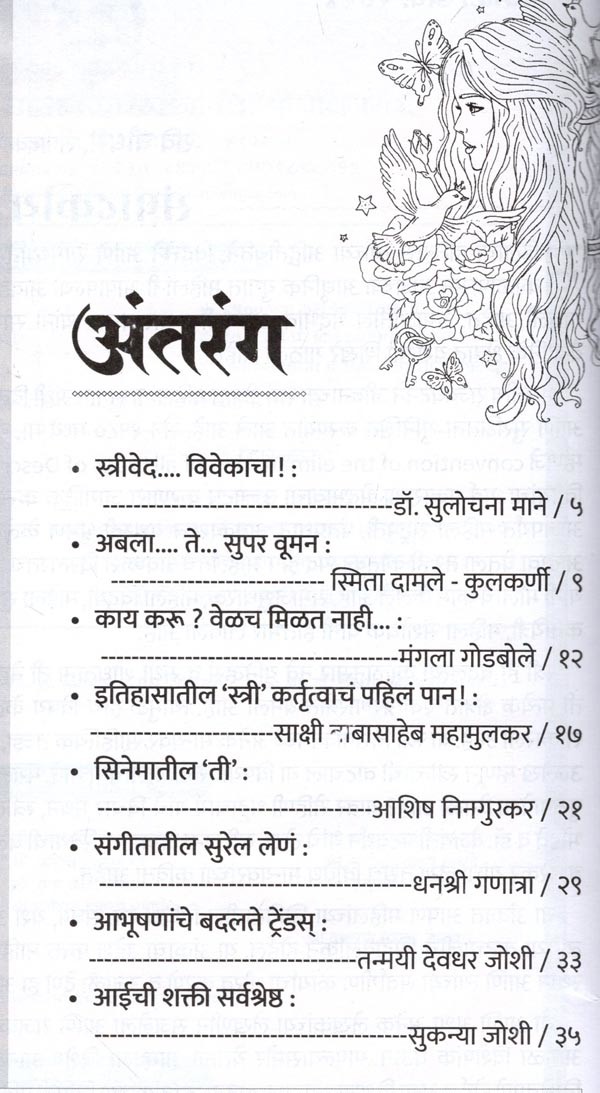 अंतरंग
• स्त्रीवेद.... विवेकाचा! :
----------------------------------डॉ. सुलोचना माने / ५
• अबला.... ते... सुपर वूमन :
------------------------- स्मिता दामले - कुलकर्णी / ९
• काय करू ? वेळच मिळत नाही... :
-----------------------------------मंगला गोडबोले / १२
• इतिहासातील ‘स्त्री’ कर्तृत्वाचं पहिलं पान! :
---------------------साक्षी बाबासाहेब महामुलकर / १७
सिनेमातील ‘ती’ :
--------------------------------आशिष निनगुरकर / २१
• संगीतातील सुरेल लेणं :
------------------------------------धनश्री गणात्रा / २९
• आभूषणांचे बदलते ट्रेंडस् :
------------------------------तन्मयी देवधर जोशी / ३३
• आईची शक्ती सर्वश्रेष्ठ :
------------------------------------सुकन्या जोशी / ३५